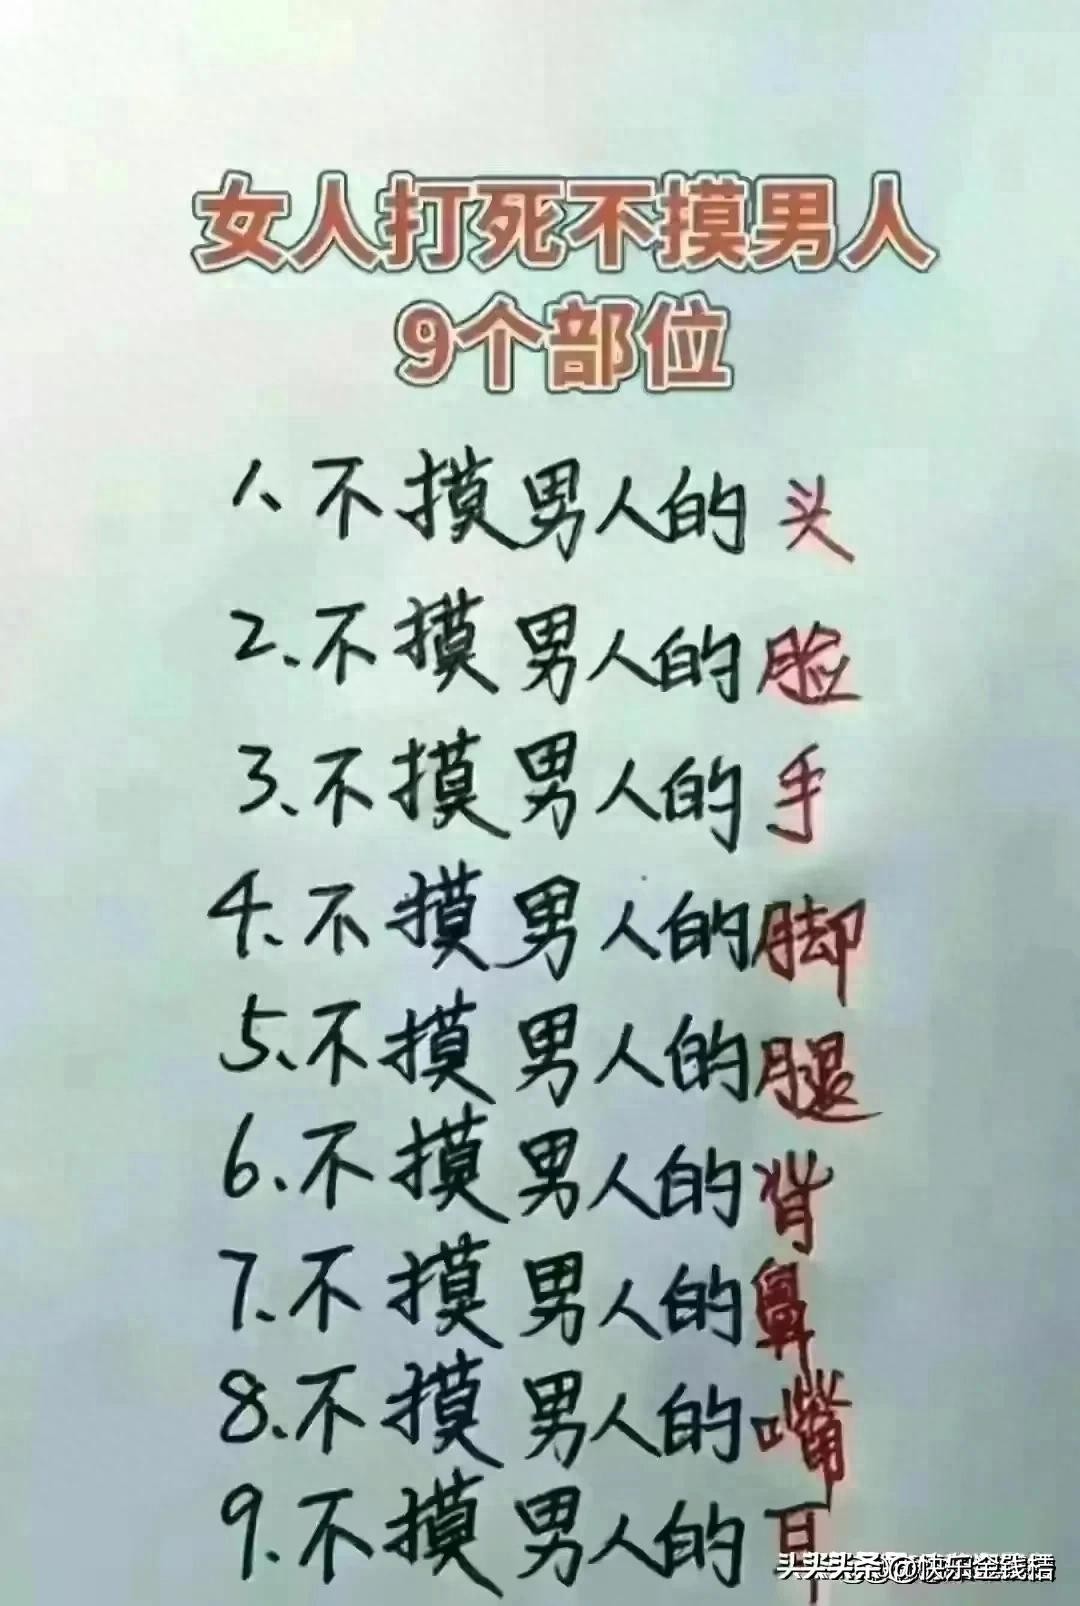 女人打死不摸男人
9个部位
1、不摸男人的头
2、不摸男人的脸
3、不摸男人的手
4、不摸男人的脚
5、不摸男人的腿
6、不摸男人的背
7、不摸男人的鼻
8、不摸男人的嘴
9、不摸男人的耳
头头条条@快乐金钱梧